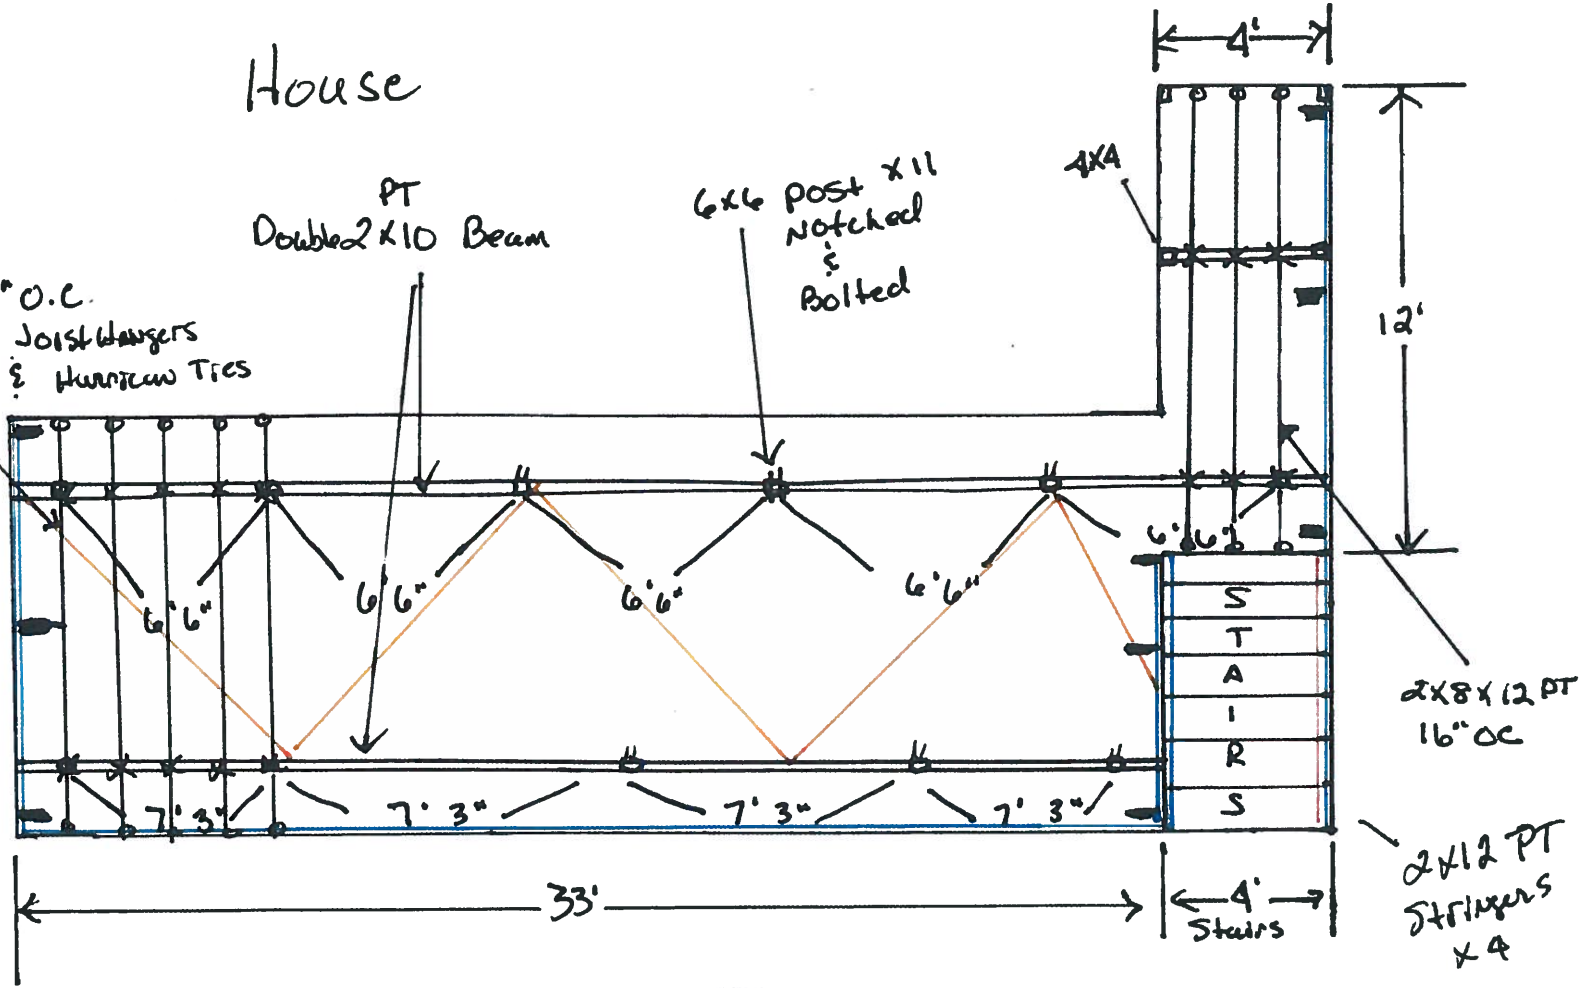 House
4'
PT
Double 2x10 Beam
6x6 Post x11
Notched
&
Bolted
4x4
" O.C.
Joist Hangers
& Hurrican Ties
12'
6' 6"
6' 6"
6' 6"
6' 6"
6' 6"
S
T
A
I
R
S
2x8x12 PT
16" OC
7' 3"
7' 3"
7' 3"
7' 3"
33'
4'
Stairs
2x12 PT
Stringers
x 4